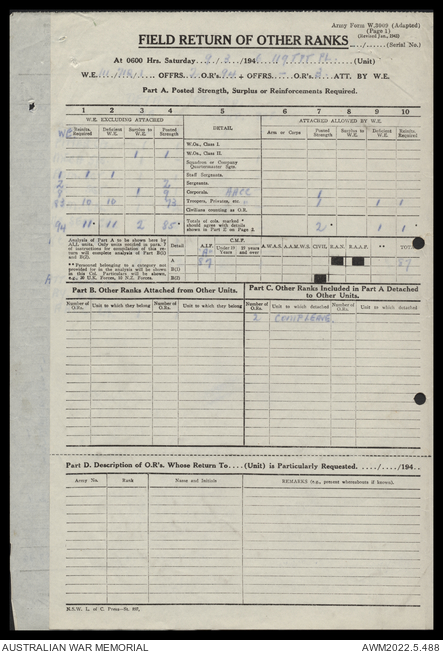 Army Form W.3009 (Adapted)
(Page 1)
(Revised Jan., 1942)
FIELD RETURN OF OTHER RANKS
....../......(Serial No.)
At 0600 Hrs. Saturday 9/3/194 (Unit)
W.E. OFFRS. O.R's. + OFFRS. O.R's. ATT. BY W.E.
Part A. Posted Strength, Surplus or Reinforcements Required.
1 2 3 4 5 6 7 8 9 10
W.E. EXCLUDING ATTACHED DETAIL ATTACHED ALLOWED BY W.E.
WE Reinfts. Required Deficient W.E. Surplus to W.E. Posted Strength Arms or Corps Posted Strength Surplus to W.E. Deficient W.E. Reinfts. Required
W.Os., Class I.
1 1 W.Os., Class II.
Squadron or Company Quartermaster Sgts.
1 1 1 Staff Sergeants.
2 2 Sergeants.
8 1 9 Corporals. AACC 1
83 10 10 73 Troopers, Privates, etc. 1 1 1
Civilians counting as O.R.
94 11 * 11 2 85 * Totals of cols. marked * should agree with details shown in Part E on Page 2 2 * 1 1 *
Analysis of Part A to be shown here by ALL units. Only units entitled to posn. 7 of instructions for compilation of this return will complete analysis of Part B(i) and B(ii).
** Personnel belonging to a category not provided for to be included in this Col. Particulars will be shown, eg., 20 U.K. Forces, 62 N.Z. Forces.
Detail A.I.F. C.M.F. Under 19 Years 19 years and over A.W.A.S. A.A.M.W.S. CIVIL R.A.N. R.A.A.F. ** TOTAL
A 87 87
B(i)
B(ii)
Part B. Other Ranks Attached from Other Units.
Part C. Other Ranks Included in Part A Detached to Other Units.
Number of O.Rs. Unit to which they belong Number of O.Rs. Unit to which they belong Number of O.Rs. Unit to which they belong
Number of O.Rs. Unit to which detached Number of O.Rs. Unit to which detached
2 COMP LEAVE.
Part D. Description of O.R's. Whose Return To....(Unit) is Particularly Requested. ..../..../194..
Army No. Rank Name and Initials REMARKS (e.g., present whereabouts if known).
N.S.W. L. of C. Press
AUSTRALIAN WAR MEMORIAL
AWM2022.5.488